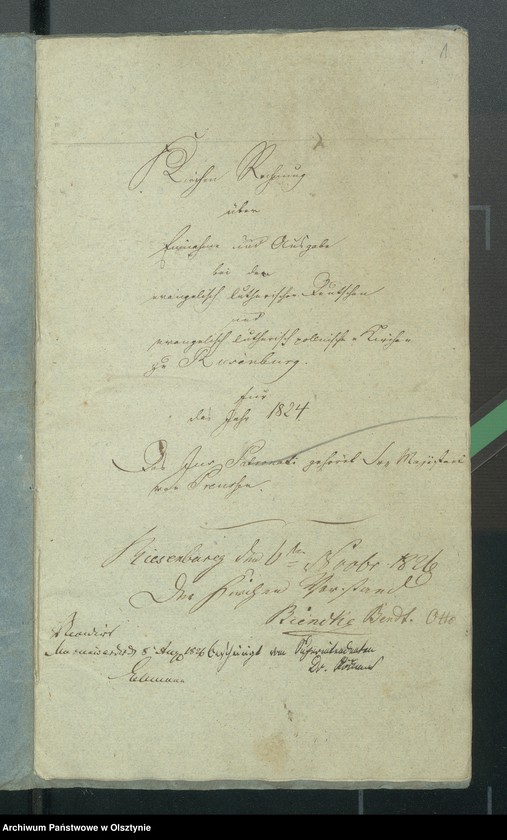 1
Kirchen Rechnung
über
Einnahme und Ausgabe
bei der
evangelisch lutherischen Deutschen
und
evangelisch lutherisch polnischen Kirchen
zu Riesenburg.
für
das Jahr 1824
Das Jus Patronati gehört Sr Majestaet
von Preußen.
Riesenburg den 6ten Novbr. 1826
Der Kirchen Vorstand
Bendt. Otto
Revidirt
Marienwerder 8 Aug 1826 vom Superintendenten
Dr.
Archiwum Państwowe w Olsztynie